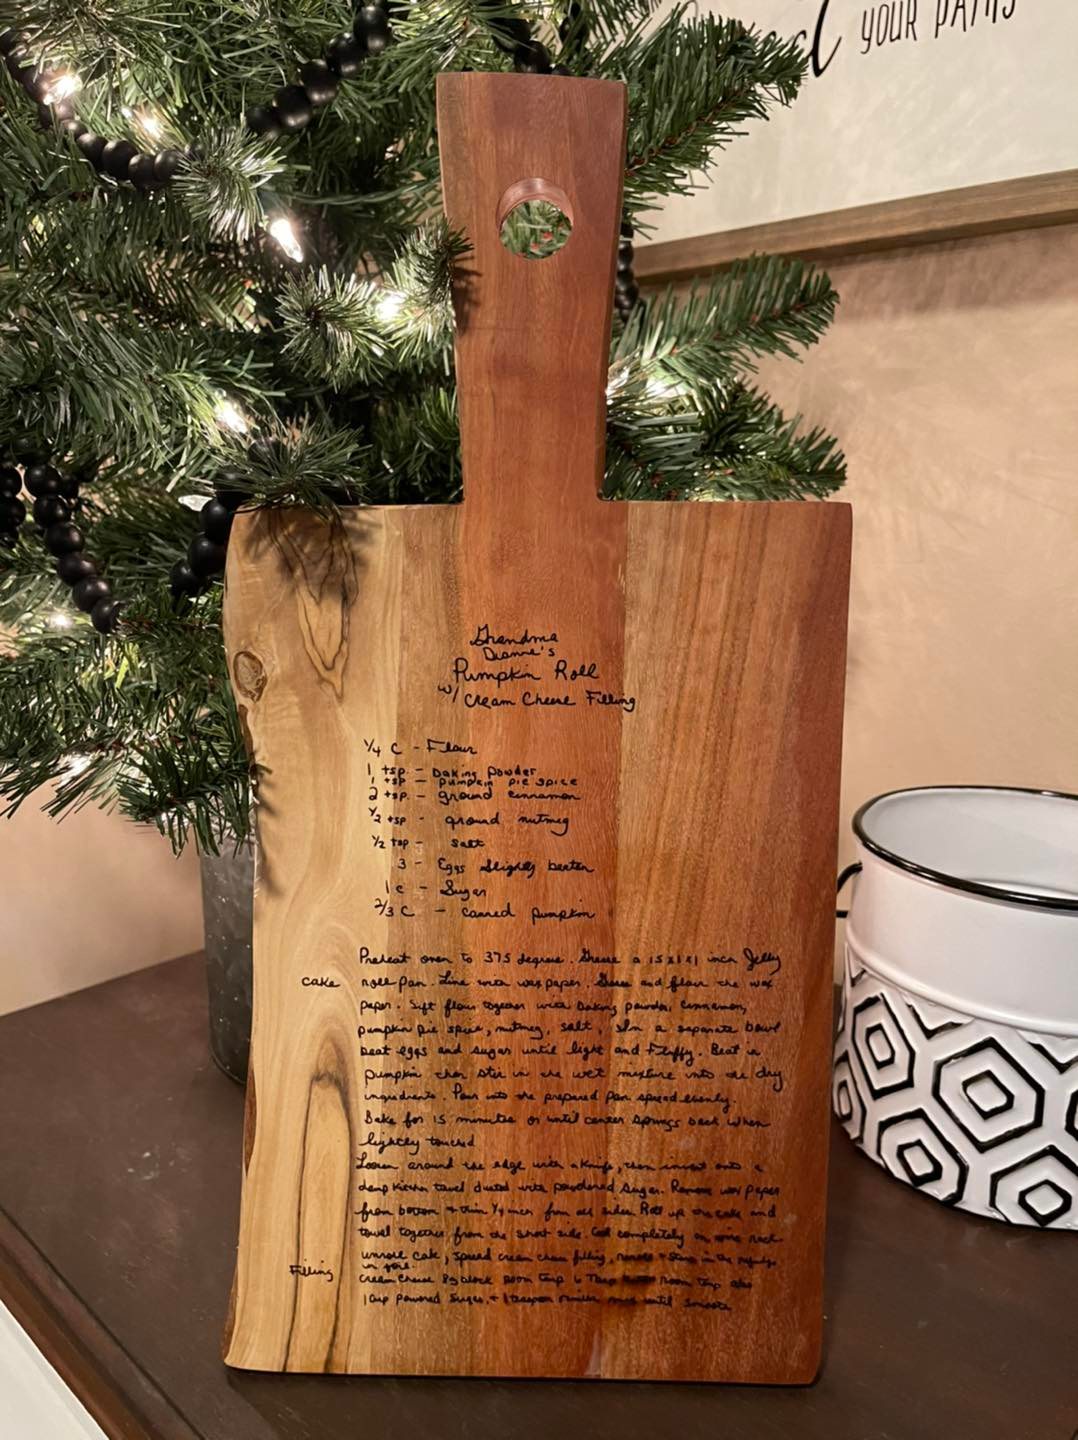 YOUR PATHS
Grandma
Dianne's
Pumpkin Roll
w/ Cream Cheese Filling
¼ C - Flour
1 tsp. - baking powder
1 tsp - pumpkin pie spice
2 tsp. - ground cinnamon
½ tsp - ground nutmeg
½ tsp - salt
3 - Eggs Slightly beaten
1 c - Sugar
2/3 C - canned pumpkin
Preheat oven to 375 degrees. Grease a 15x1x1 inch Jelly
cake roll pan. Line with wax paper. Grease and flour the wax
paper. Sift flour together with baking powder, cinnamon,
pumpkin pie spice, nutmeg, salt, In a separate bowl
beat eggs and sugar until light and Fluffy. Beat in
pumpkin then stir in the wet mixture into the dry
ingredients. Pour into the prepared pan spread evenly.
Bake for 15 minutes or until center springs back when
lightly touched
Loosen around the edge with a knife, then invert onto a
damp kitchen towel dusted with powdered sugar. Remove wax paper
from bottom + trim ¼ inch from all sides. Roll up the cake and
towel together from the short side. Cool completely on wire rack
unroll cake, spread cream cheese filling, reroll + store in the refridge
in foil.
Filling Cream Cheese 8oz block room temp 6 Tbsp room temp
1 Cup powered Sugar, + 1 teaspoon vanilla until smooth